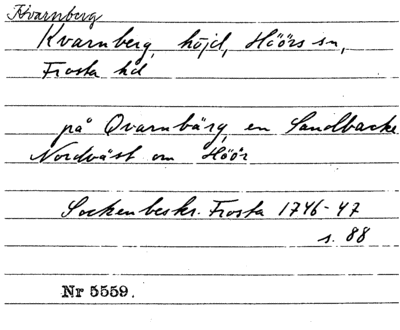 Kvarnberg
Kvarnberg, höjd, Höörs sn,
Frosta hd
på Qvarnbärg, en Sandbacke
Nordväst om Höör
Sockenbeskr. Frosta 1746-47
s. 88
Nr 5559.